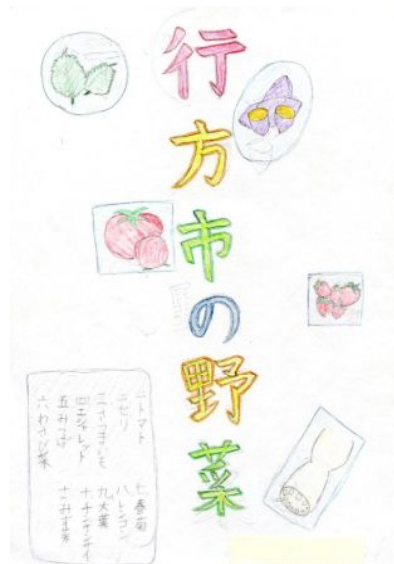 行方市の野菜
一トマト
二セリ
三さつまいも
四エシャレット
五みつば
六わさび菜
七春菊
八レンコン
九大葉
十チンゲンサイ
十一みず菜